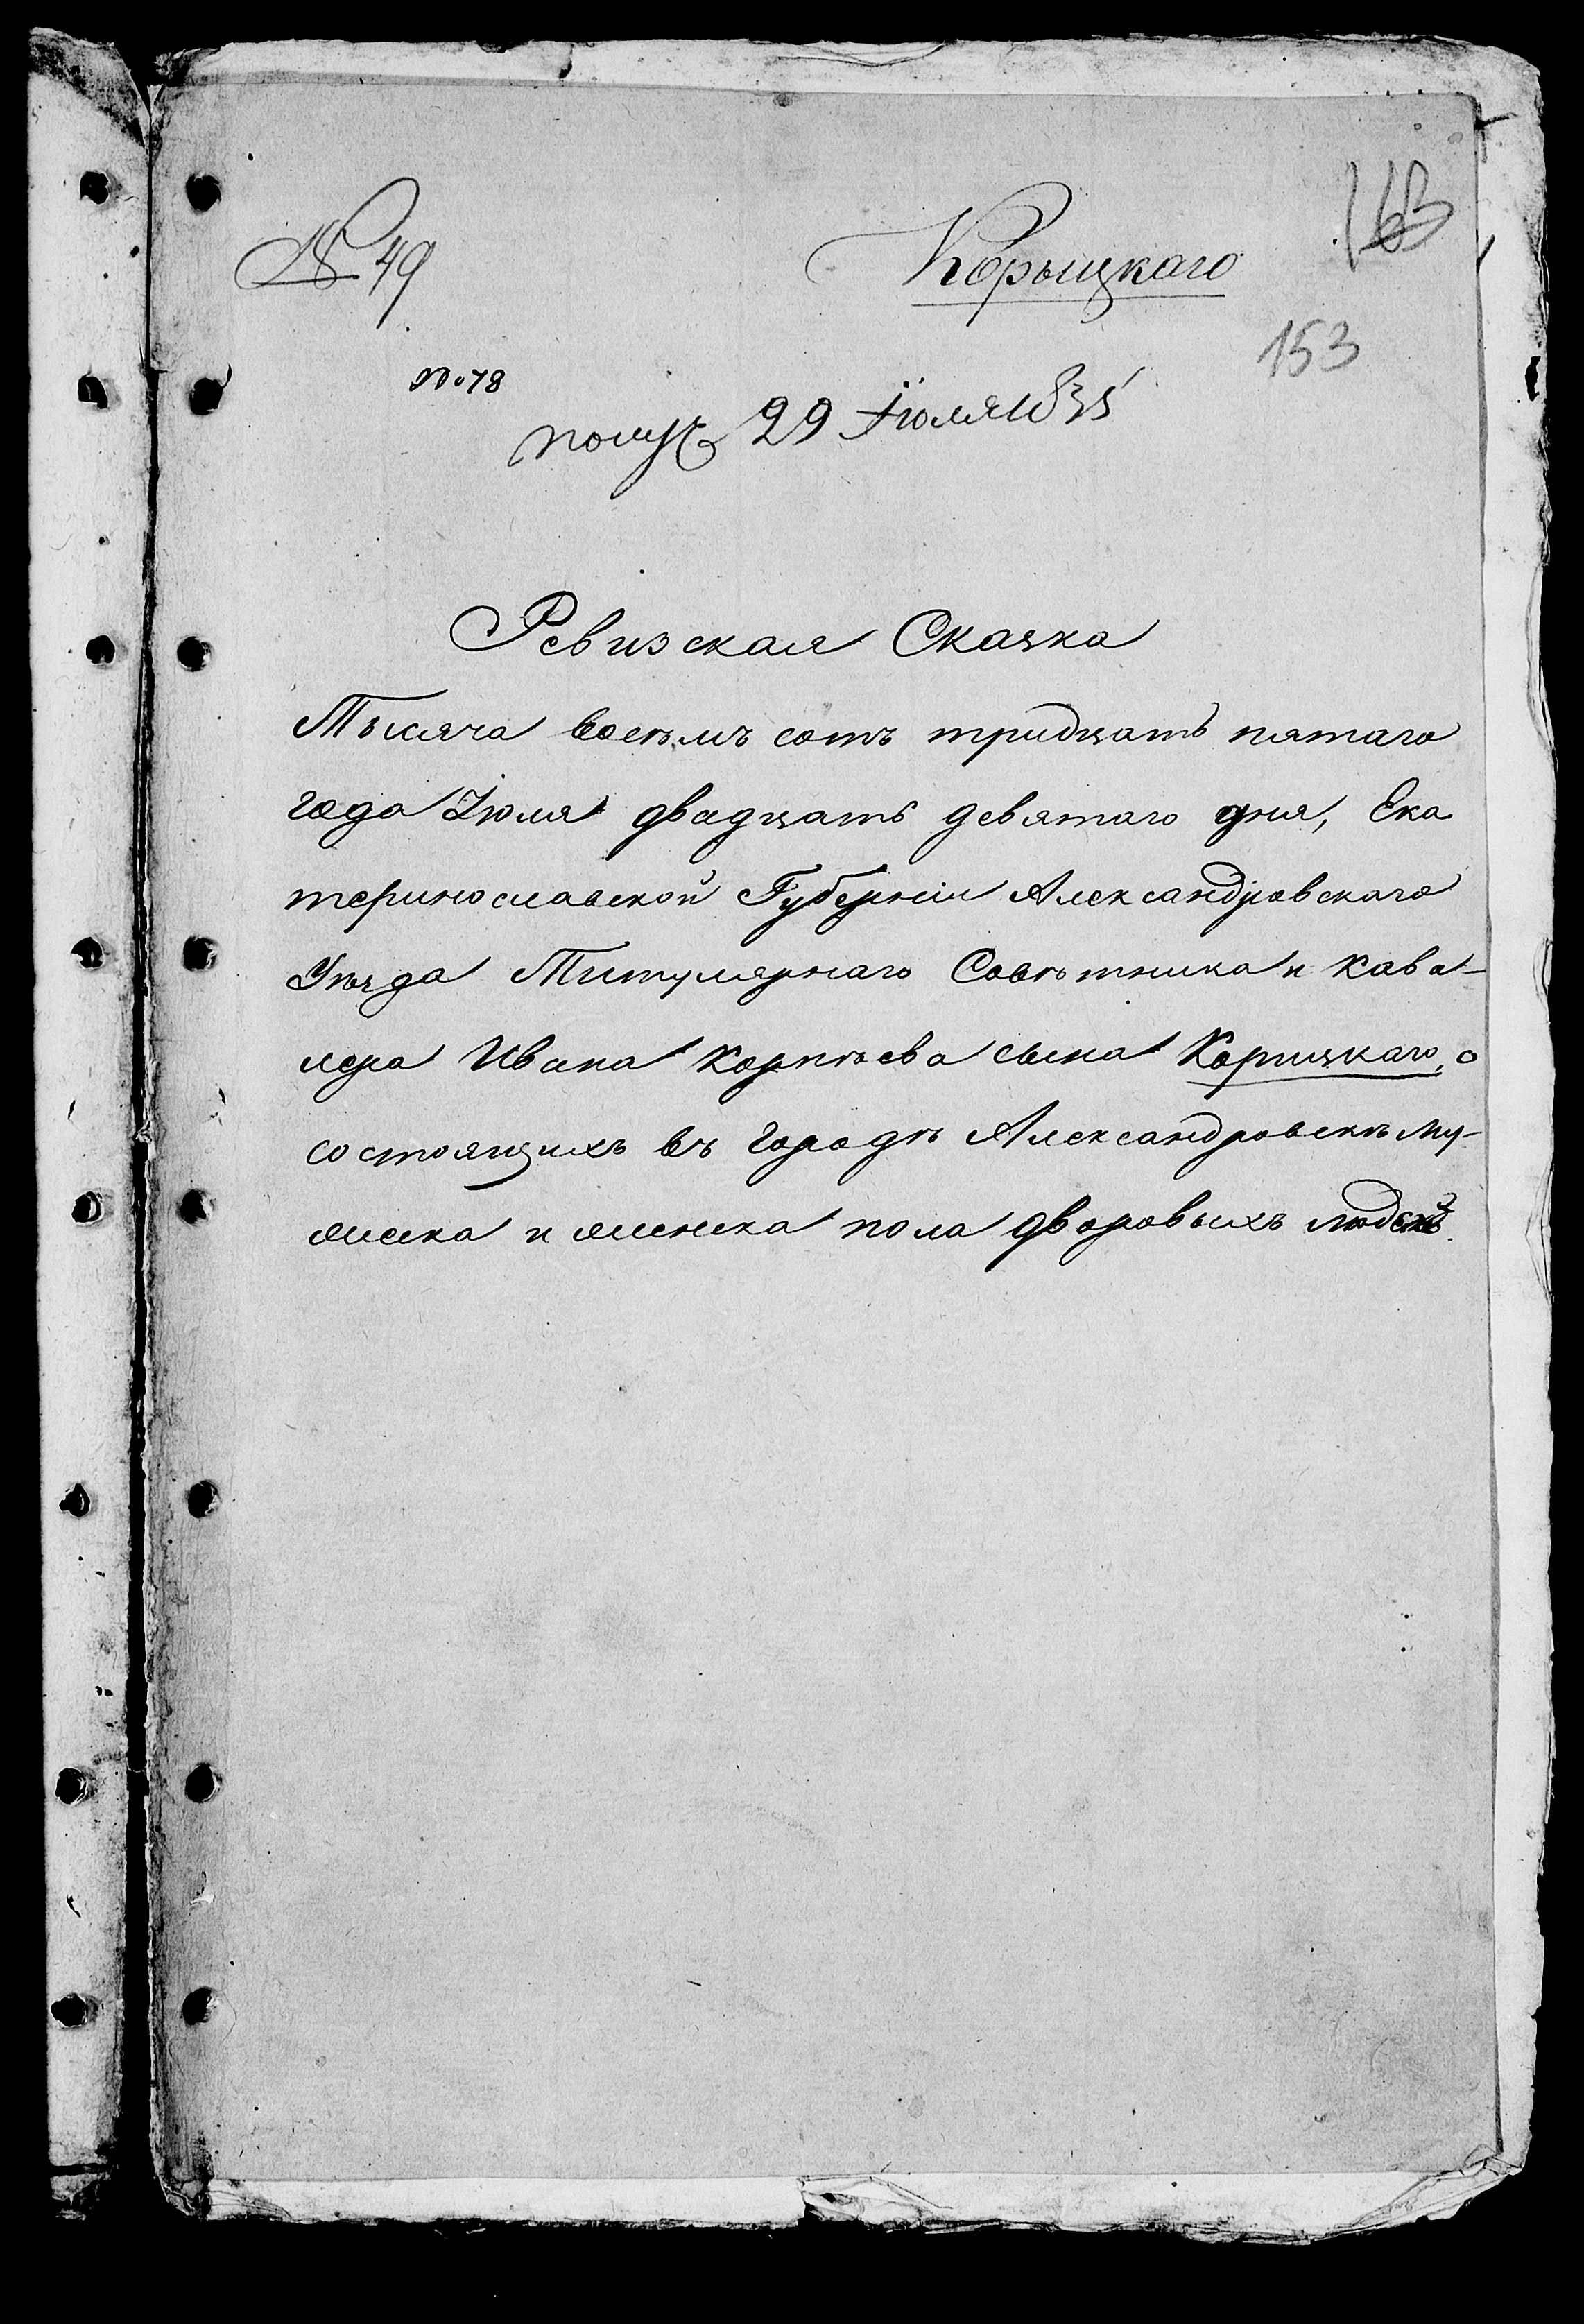 № 49
Корыцкаго
163
153
№ 78
получ 29 Іюля 1835
Ревизская Сказка
Тысяча восемъ сотъ тридцать пятаго
года Іюля двадцать девятаго дня, Ека
теринославской Губерніи Александровскаго
Уѣзда Титулярнаго Совѣтника и Кава-
лера Ивана Корнѣева сына Корицкаго, о
состоящихъ въ городѣ Александровскѣ му-
жеска и женска пола дворовыхъ людей.